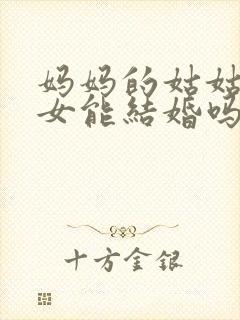 妈妈的姑姑
女能結婚吗
十方金银